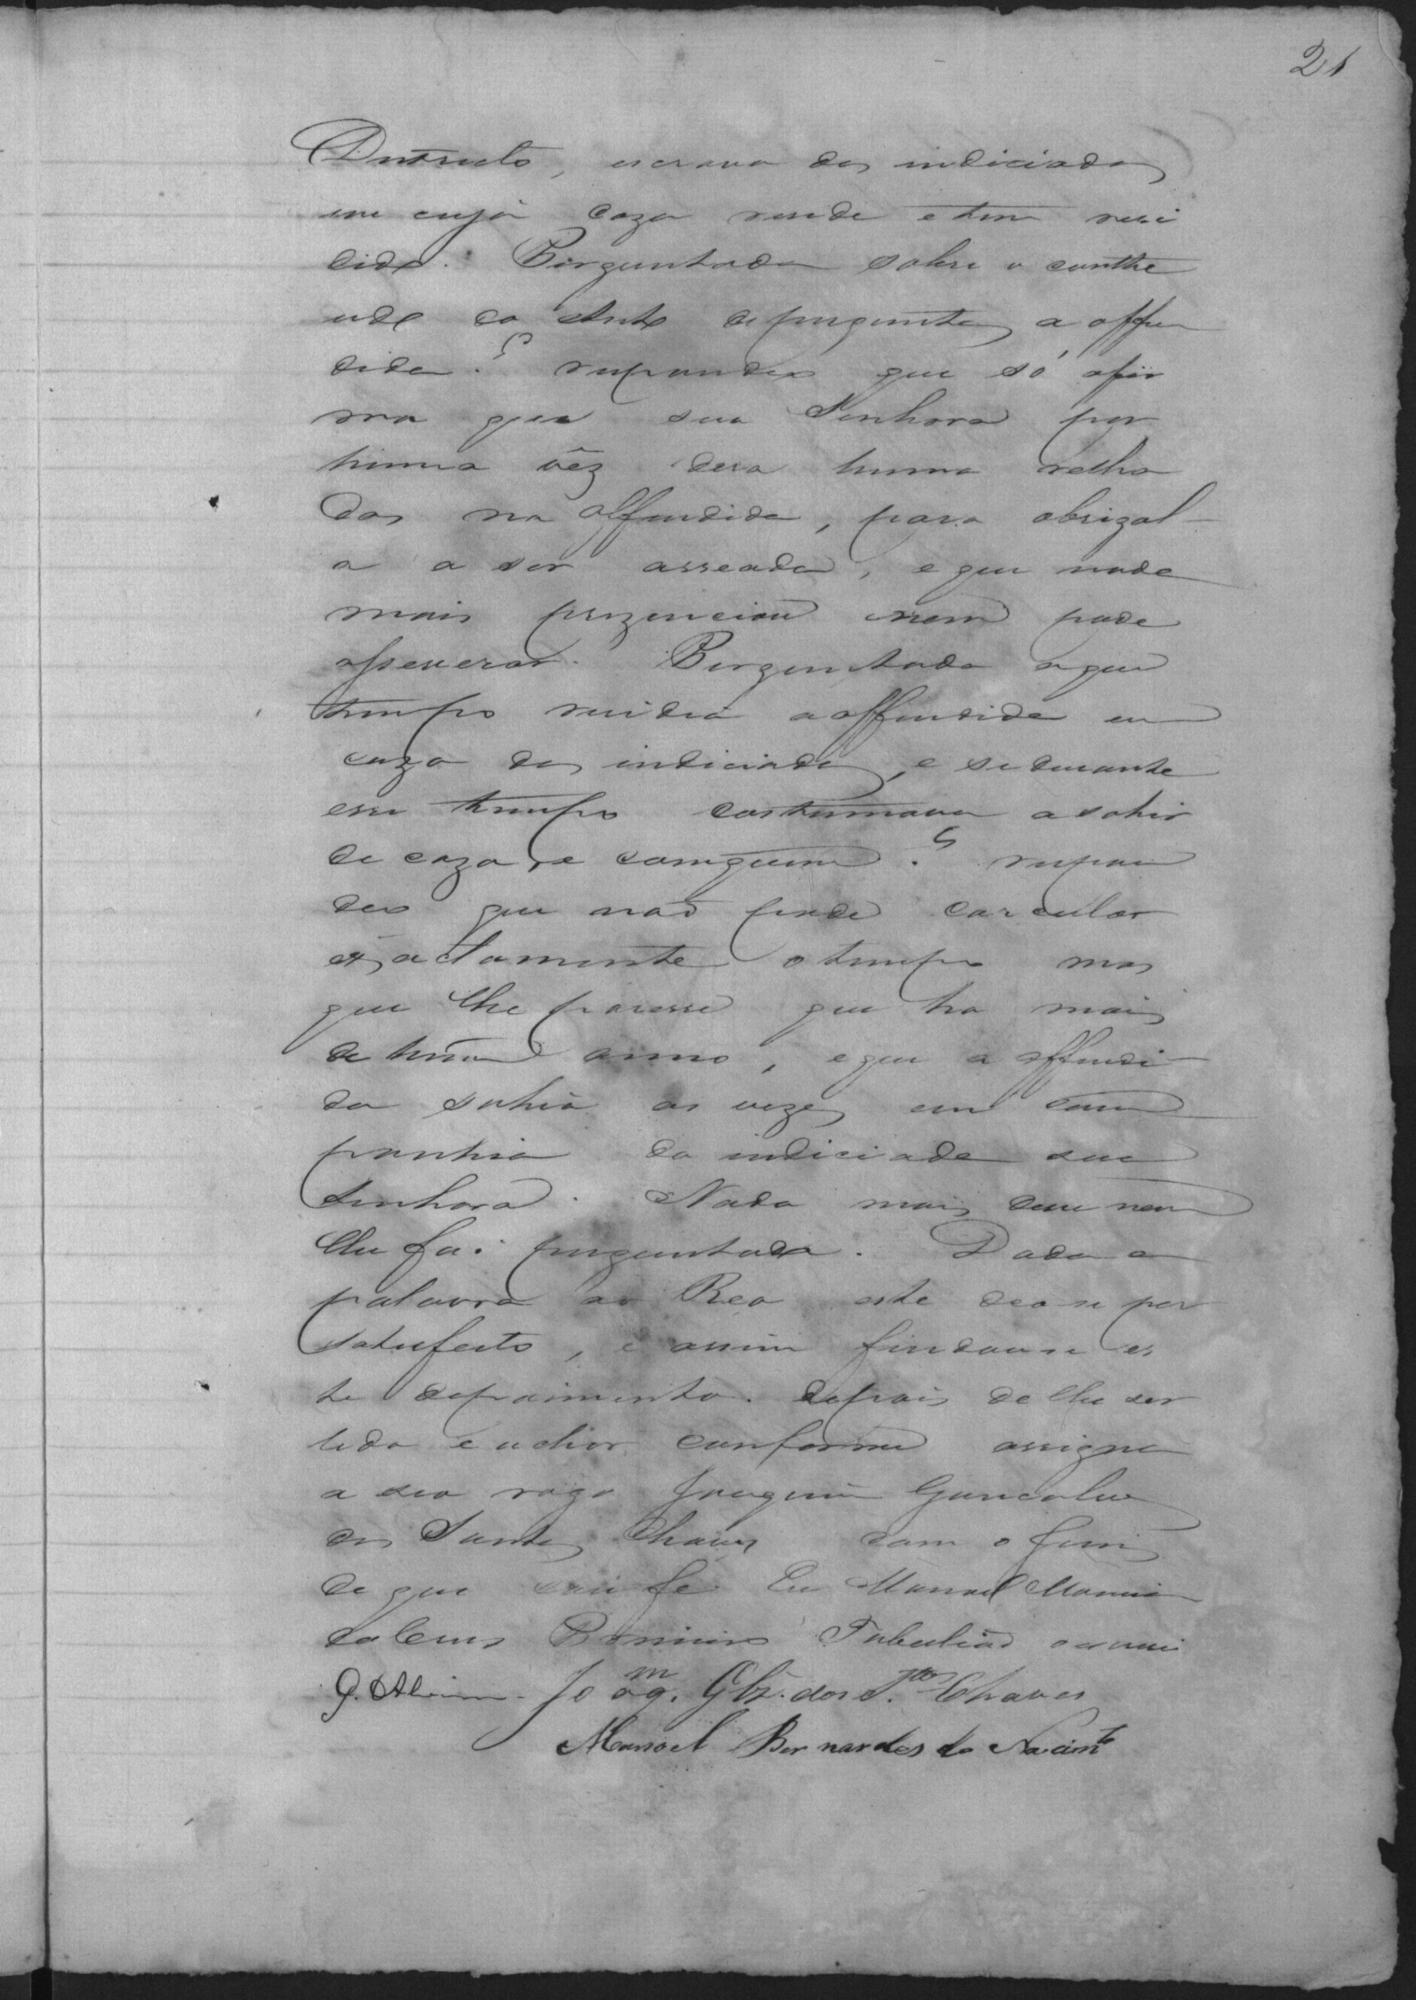 21
Districto, escrava dos indiciados
em cuja caza reside e tem resi
dido. Perguntada sobre o conthe
udo do Auto de perguntas a offen
dida? respondeo que só afir
ma que sua Senhora por
huma vêz dera humas relha
das na offendida, para obrigal-
a a ser asseada, e que nada
mais prezenciou nem pode
asseverar. Perguntada a que
tempo residia a offendida em
caza dos indiciados, e se durante
esse tempo costumava a sahir
de caza, e com quem? respon
deo que não pode carcular
exactamente o tempo mas
que lhe paresse que ha mais
de hum anno, e que a offendi-
da sahia as vezes em com
panhia da indiciada sua
Senhora. Nada mais disse nem
lhe foi perguntada. Dada a
palavra ao Reo este deo-se por
satisfeito, e assim findou-se es
te depoimento. depois de lhe ser
lido e achar conforme assigna
a seo rogo Joaquim Goncalves
dos Santos Chaves com o Juis
de que dou fé Eu Manoel
Tabelião escrevi
Joaqm. Glz. dos S.tos Chaves
Manoel Bernardes do Nascimto